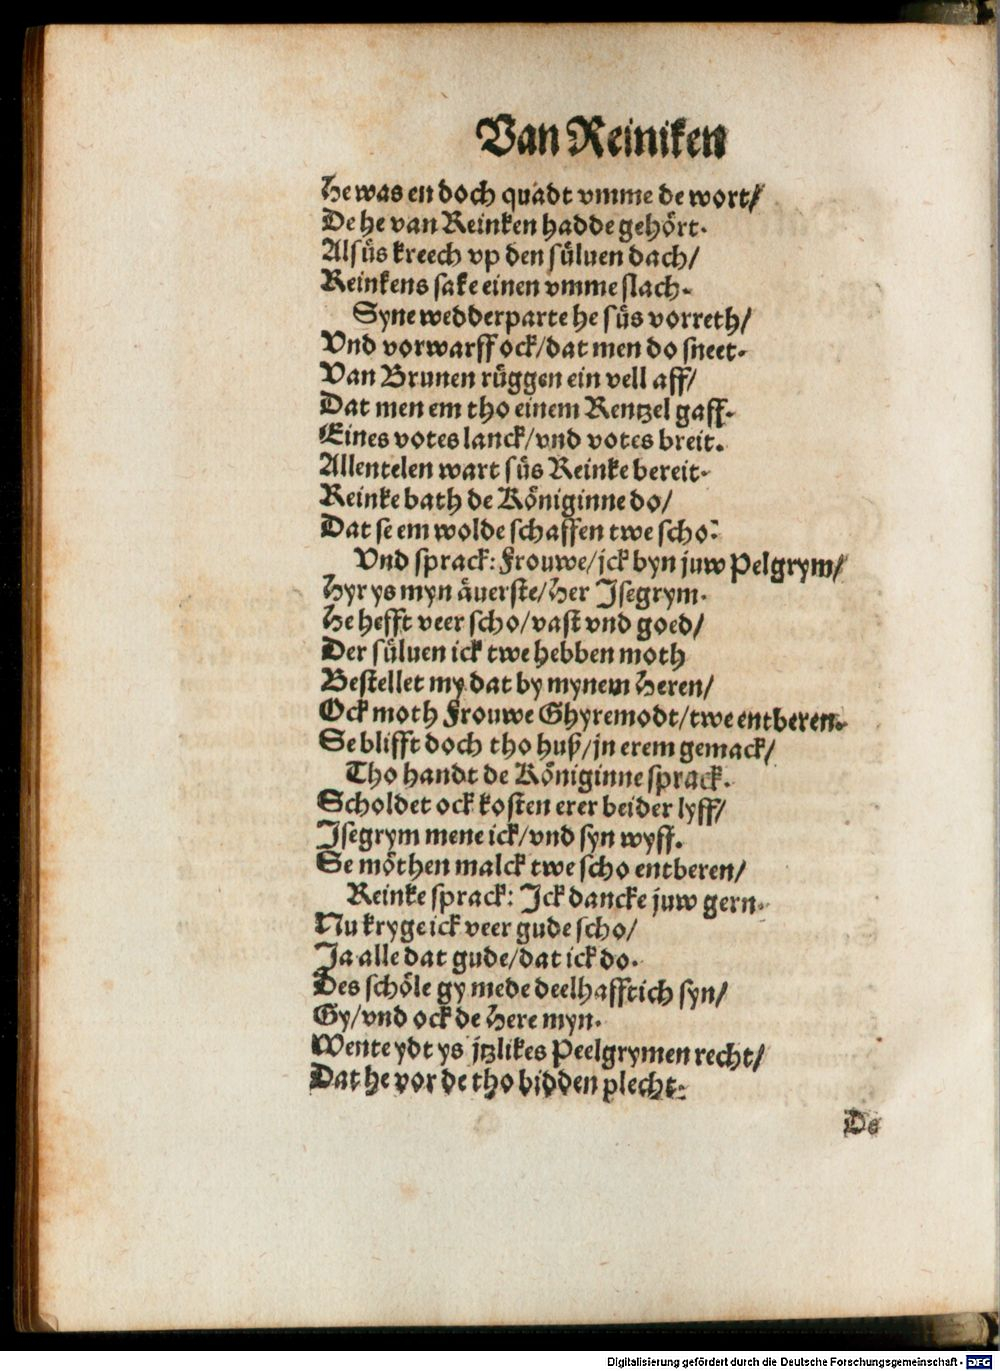 Van Reiniken
He was en doch quådt vmme de wort/
De he van Reinken hadde gehört.
Alsüs kreech vp den sülven dach/
Reinkens sake einen vmme slach.
Syne wedderparte he süs vorreth/
Vnd vorwarff ock/dat men do sneet.
Van Brunen rüggen ein vell aff/
Dat men em tho einem Rentzel gaff.
Eines votes lanck/vnd votes breit.
Allentelen wart süs Reinke bereit.
Reinke bath de Königinne do/
Dat se em wolde schaffen twe scho.
Vnd sprack: Frouwe/jck byn juw Pelgrym/
Hyr ys myn äuerste/Her Isegrym.
He hefft veer scho/vast vnd goed/
Der süluen ick twe hebben moth
Bestellet my dat by mynem Heren/
Ock moth Frouwe Ghyremodt/twe entberen.
Se blifft doch tho huß/jn erem gemack/
Tho handt de Königinne sprack.
Scholdet ock kosten erer beider lyff/
Isegrym mene ick/vnd syn wyff.
Se möthen malck twe scho entberen/
Reinke sprack: Ick dancke juw gern.
Nu kryge ick veer gude scho/
Ja alle dat gude/dat ick do.
Des schöle gy mede deelhafftich syn/
Gy/vnd ock de Here myn.
Wente ydt ys jtzlikes Peelgrymen recht/
Dat he vor de tho bidden plecht.
De
Digitalisierung gefördert durch die Deutsche Forschungsgemeinschaft - DFG